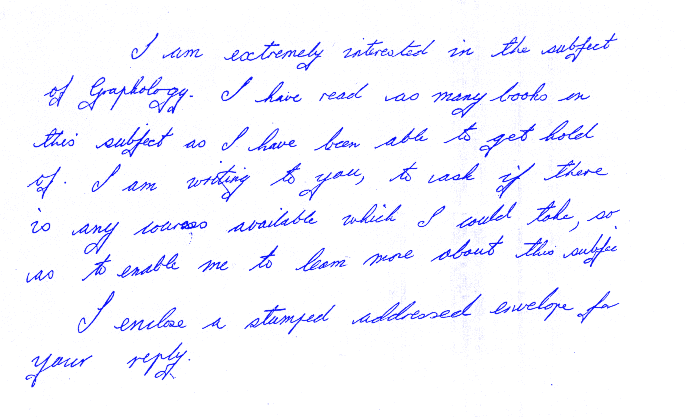 I am extremely interested in the subject
of Graphology. I have read as many books on
this subject as I have been able to get hold
of. I am writing to you, to ask if there
is any courses available which I could take, so
as to enable me to learn more about this subjec
I enclose a stamped addressed envelope for
your reply.